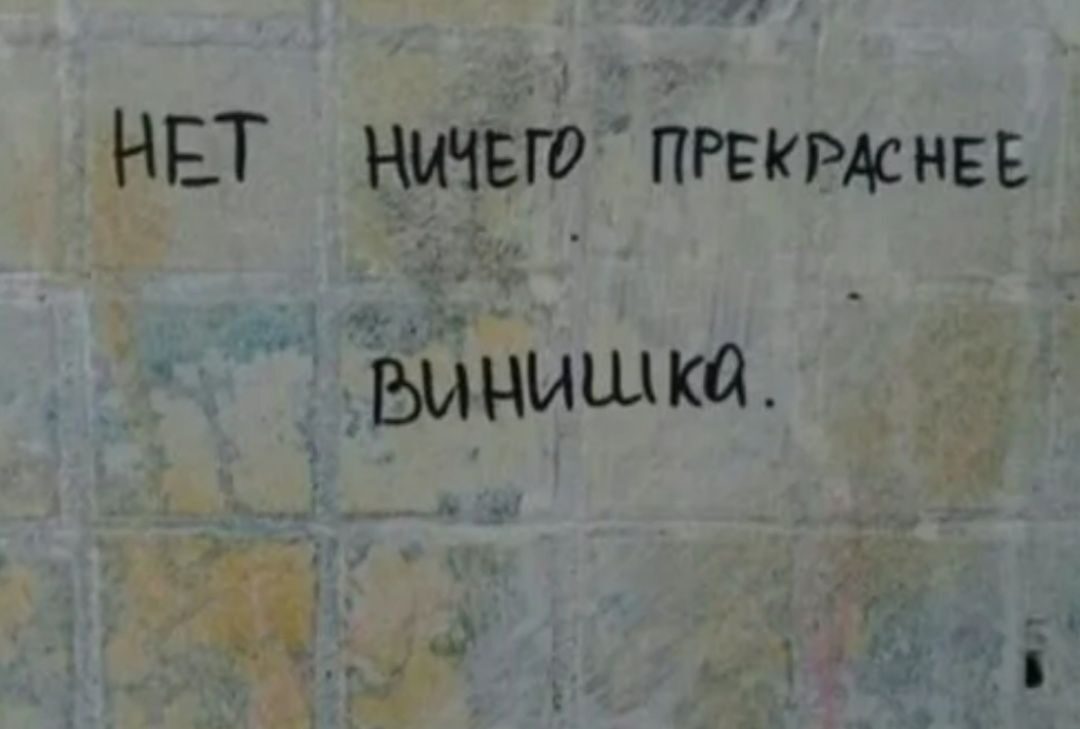 НЕТ НИЧЕГО ПРЕКРАСНЕЕ
ВИНИШКА.